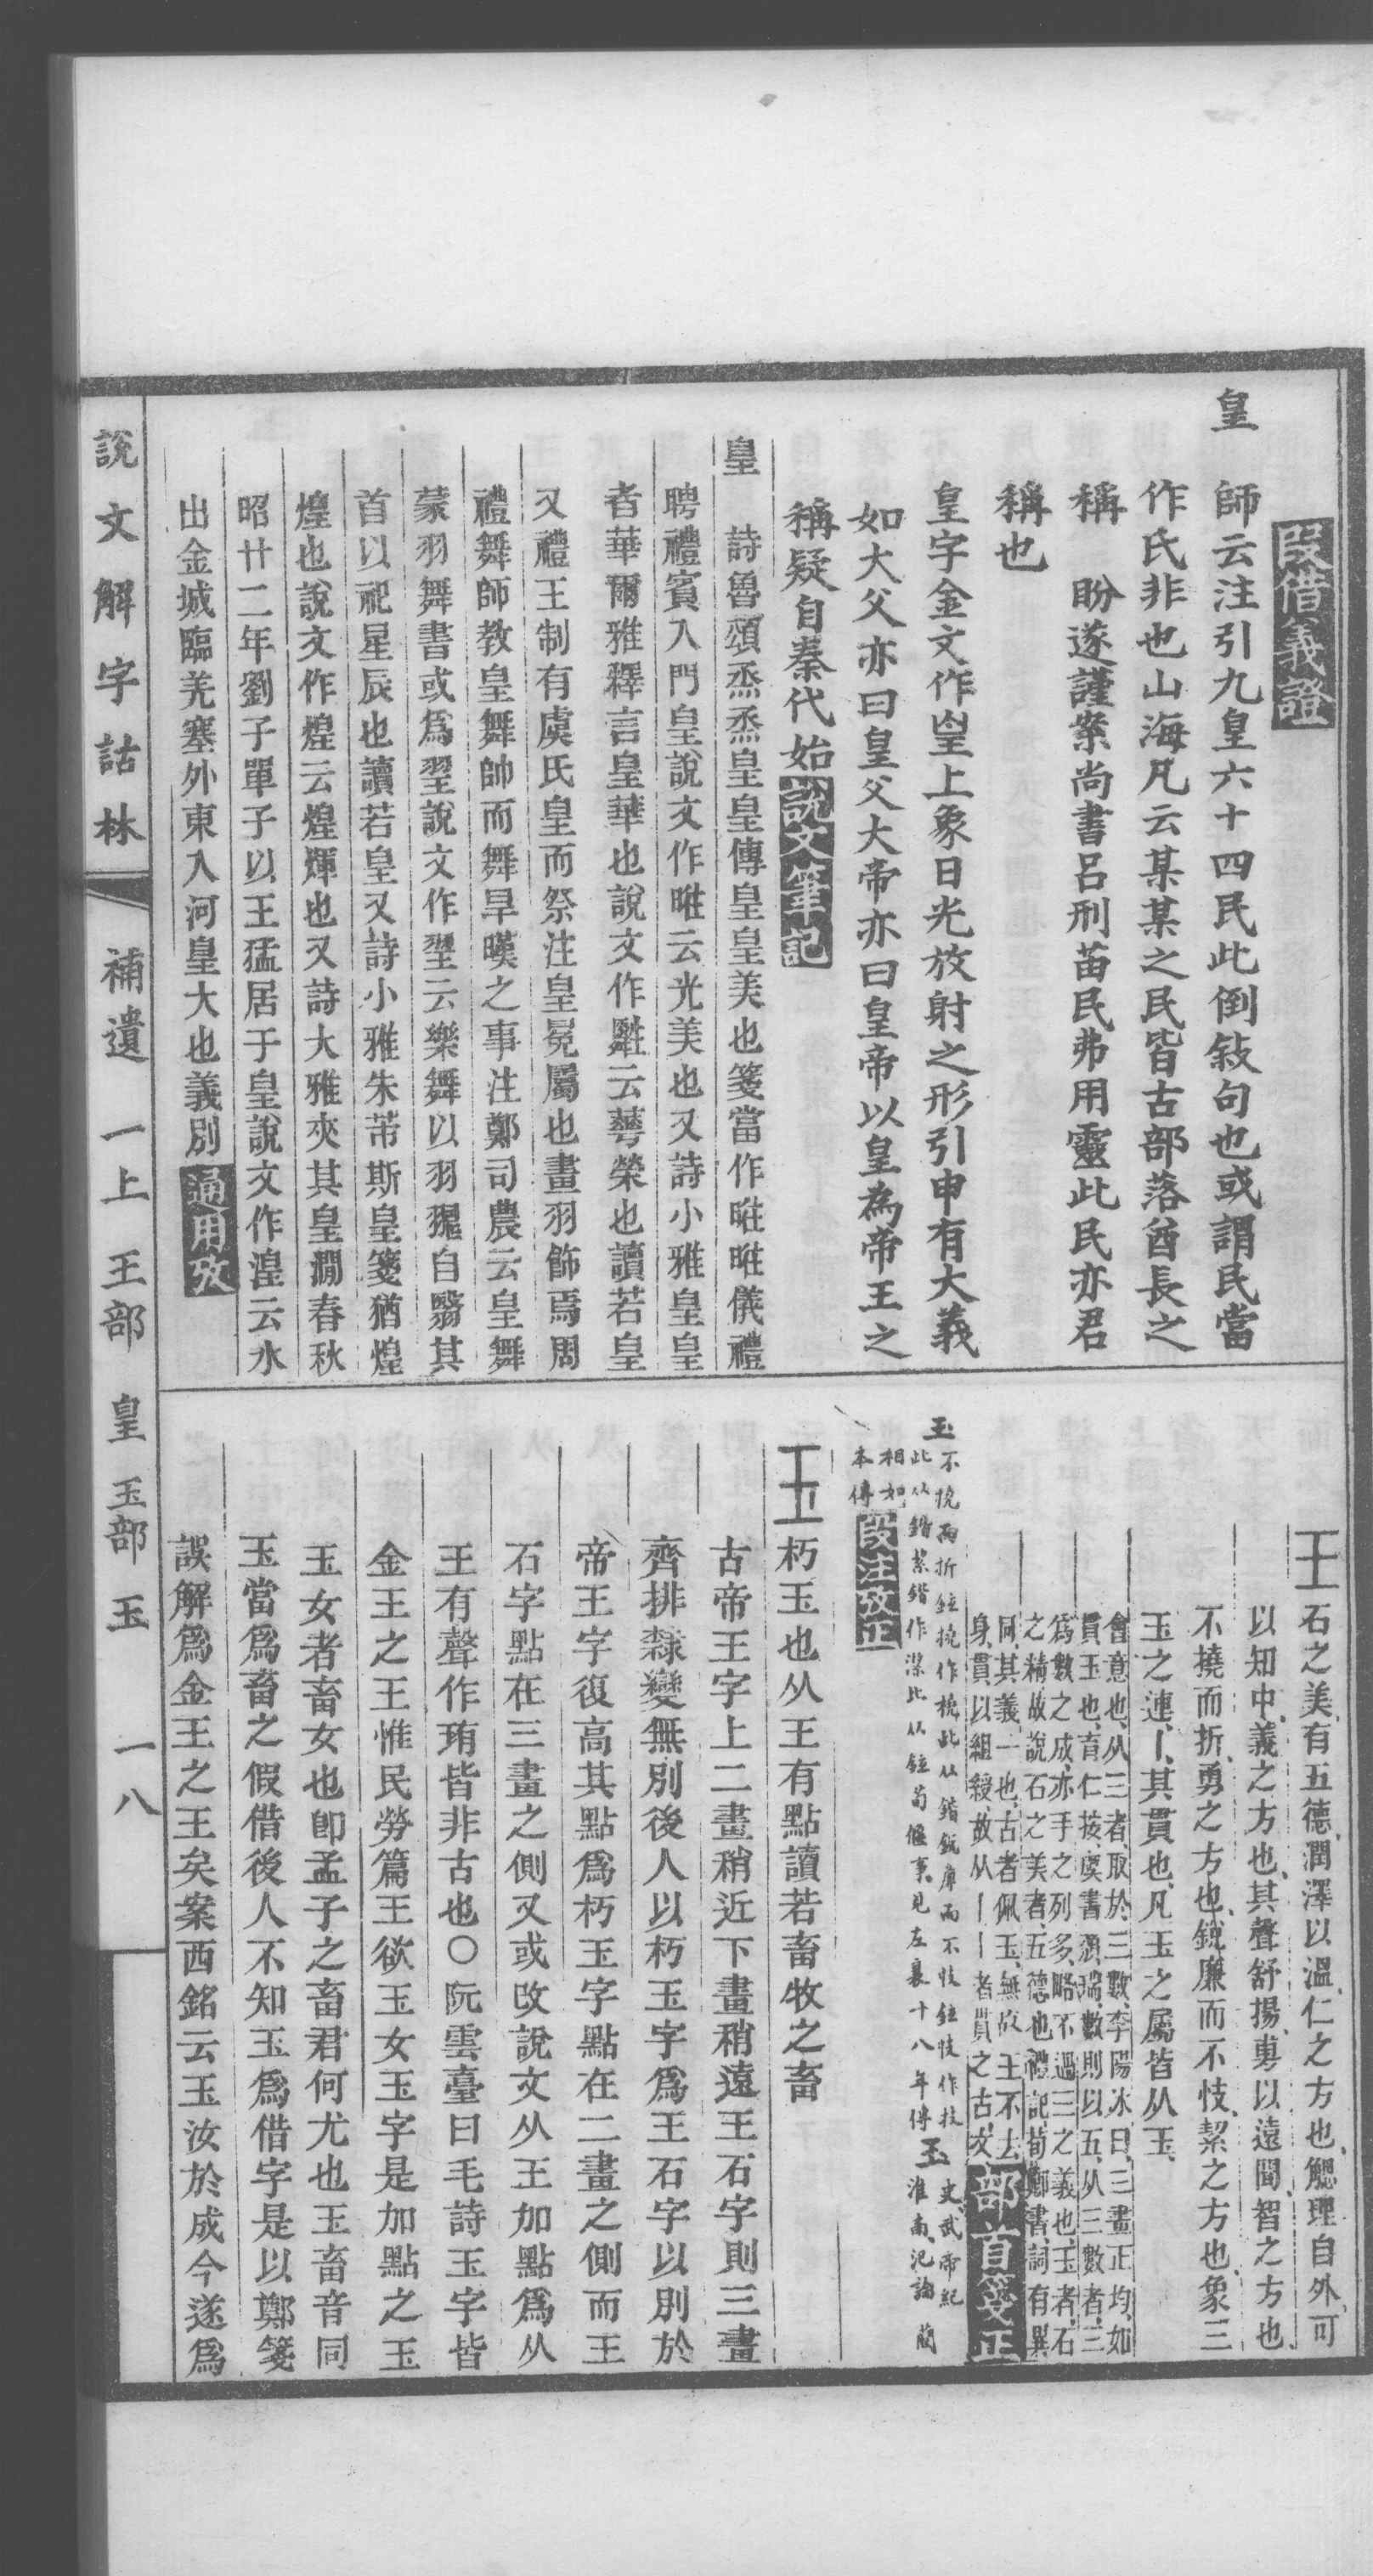 段借義證
皇　師云注引九皇六十四民此倒敍句也或謂民當
作氏非也山海凡云某某之民皆古部落酋長之
稱　盼遂謹案尚書呂刑苗民弗用靈此民亦君
稱也
皇字金文作皇上象日光放射之形引申有大義
如大父亦曰皇父大帝亦曰皇帝以皇為帝王之
稱疑自秦代始說文筆記
皇　詩魯頌烝烝皇皇傳皇皇美也箋當作暀暀儀禮
聘禮賓入門皇說文作暀云光美也又詩小雅皇皇
者華爾雅釋言皇華也說文作䑟云蕚榮也讀若皇
又禮王制有虞氏皇而祭注皇冕屬也畫羽飾焉周
禮舞師教皇舞帥而舞旱暵之事注鄭司農云皇舞
蒙羽舞書或爲翌說文作翌云樂舞以羽自翳其
首以祀星辰也讀若皇又詩小雅朱芾斯皇箋猶煌
煌也說文作煌云煌煇也又詩大雅夾其皇澗春秋
昭廿二年劉子單子以王猛居于皇說文作湟云水
出金城臨羌塞外東入河皇大也義別通用攷
王石之美有五德潤澤以溫仁之方也䚡理自外可
以知中義之方也其聲舒揚尃以遠聞智之方也
不撓而折勇之方也銳廉而不忮絜之方也象三
玉之連丨其貫也凡玉之屬皆从玉
會意也从三者取於三數李陽冰曰三畫正均如
貫玉也育仁按虞書瑞數則以五从三數者三
爲數之成亦手之列多略不過三之義也玉者石
之精故說石之美者五德也禮記荀鄭書詞有異
同其義一也古者佩玉無故王不去
身貫以組綬故从丨丨者貫之古文部首箋正
玉不撓而折鉉撓作橈此从鍇銳廉而不忮鉉忮作技
此从鍇絜鍇作潔此从鉉荀偃事見左襄十八年傳玉史武帝紀
淮南氾論　藺
相如
本傳段注攷正
王朽玉也从王有點讀若畜牧之畜
古帝王字上二畫稍近下畫稍遠王石字則三畫
齊排隸變無別後人以朽玉字爲王石字以別於
帝王字復高其點爲朽玉字點在二畫之側而王
石字點在三畫之側又或改說文从王加點爲从
王有聲作珛皆非古也○阮雲臺曰毛詩玉字皆
金王之王惟民勞篇王欲玉女玉字是加點之玉
玉女者畜女也卽孟子之畜君何尤也玉畜音同
玉當爲畜之假借後人不知玉爲借字是以鄭箋
誤解爲金王之王矣案西銘云玉汝於成今遂爲
說文解字詁林　補遺　一上　王部　皇　玉部　玉　一八